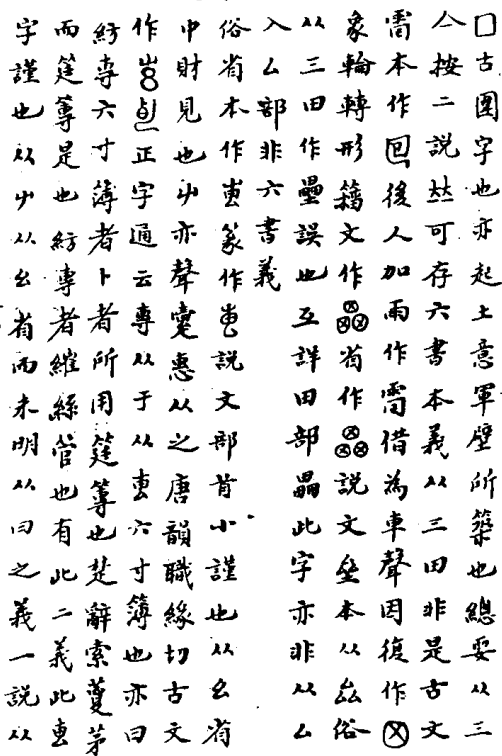 口古圍字也亦起土意軍壁所築也總要从三
厽按二說竝可存六書本義从三田非是古文
雷本作回後人加雨作雷借為車聲因復作
象輪轉形籀文作省作說文壘本从厽俗
从三田作壘誤也互詳田部畾此字亦非从厶
入厶部非六書義
俗省本作叀篆作叀說文部首小謹也从幺省
屮財見也屮亦聲疐惠从之唐韻職緣切古文
作正字通云專从于从叀六寸簿也亦曰
紡專六寸簿者卜者所用筳篿也楚辭索藑茅
而筳篿是也紡專者繀絲管也有此二義此叀
字謹也从屮从幺省而未明从曰之義一說从